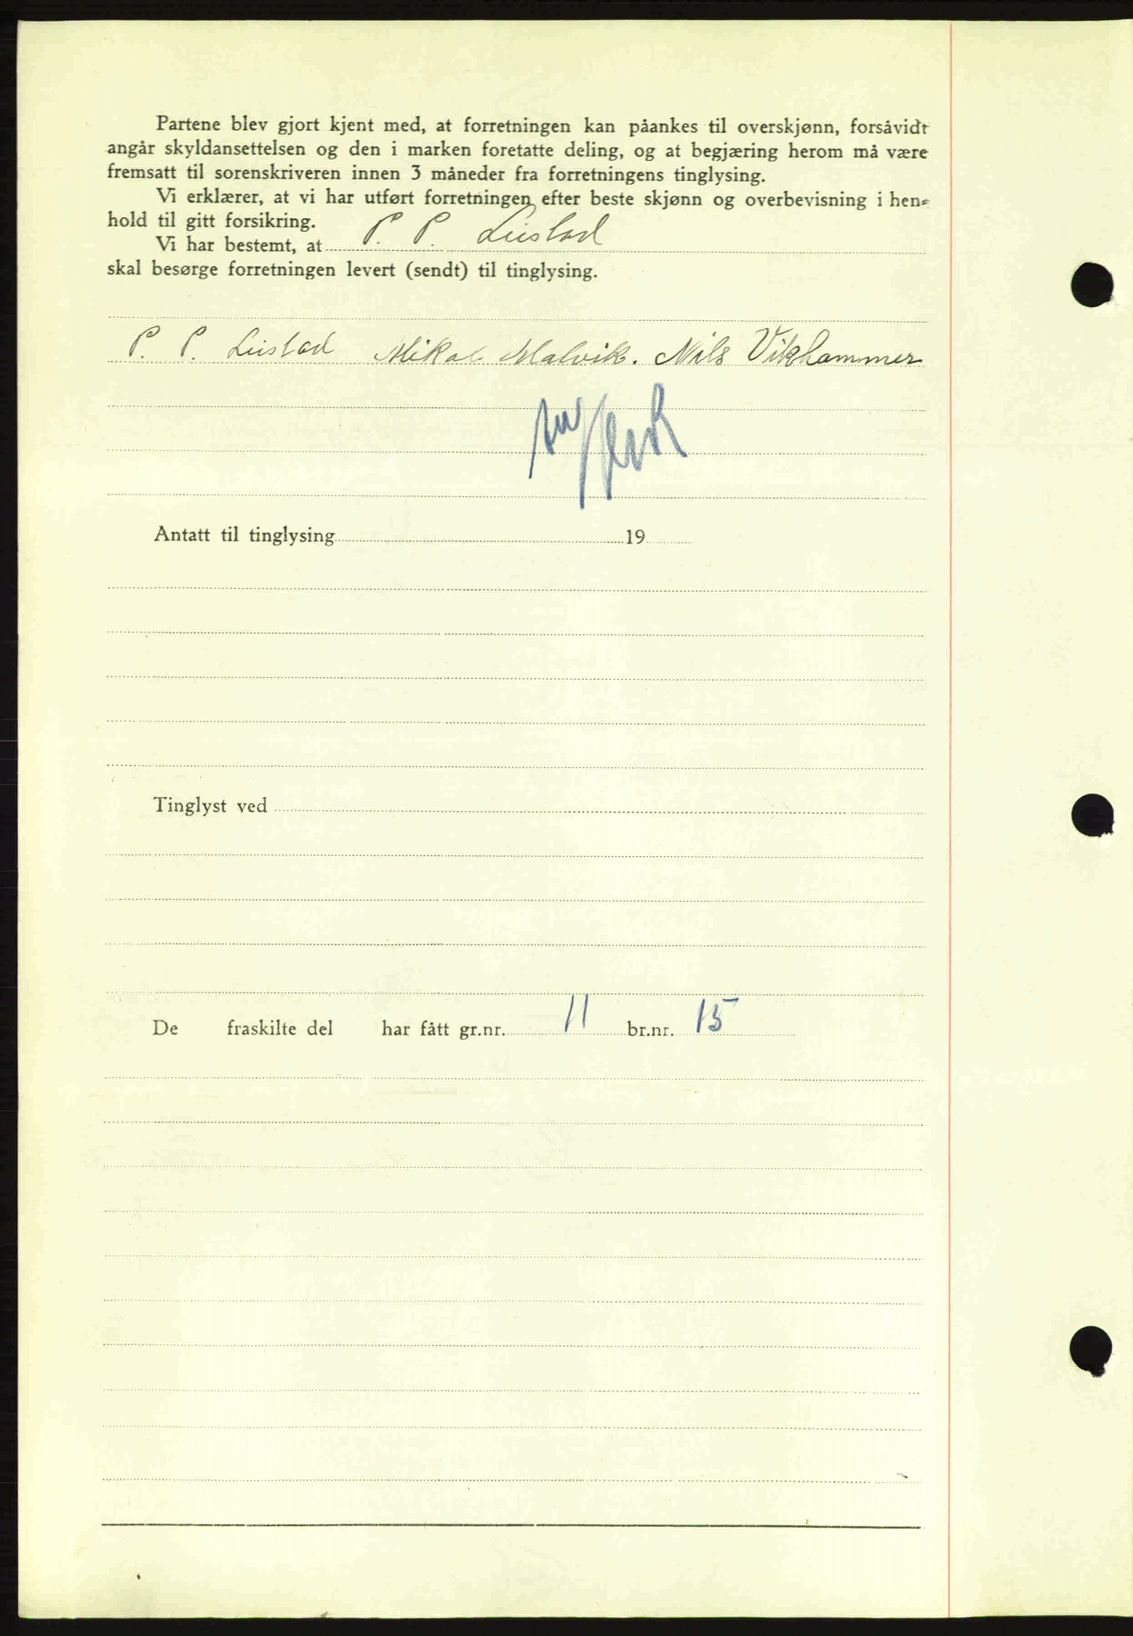 Partene blev gjort kjent med, at forretningen kan påankes til overskjønn, forsåvidt
angår skyldansettelsen og den i marken foretatte deling, og at begjæring herom må være
fremsatt til sorenskriveren innen 3 måneder fra forretningens tinglysing.
Vi erklærer, at vi har utført forretningen efter beste skjønn og overbevisning i hen-
hold til gitt forsikring.
Vi har bestemt, at P. P. Leistad
skal besørge forretningen levert (sendt) til tinglysing.
P. P. Leistad Mikal Malvik. Nils Vikhammer
Antatt til tinglysing 19
Tinglyst ved
De fraskilte del har fått gr.nr. 11 br.nr. 15